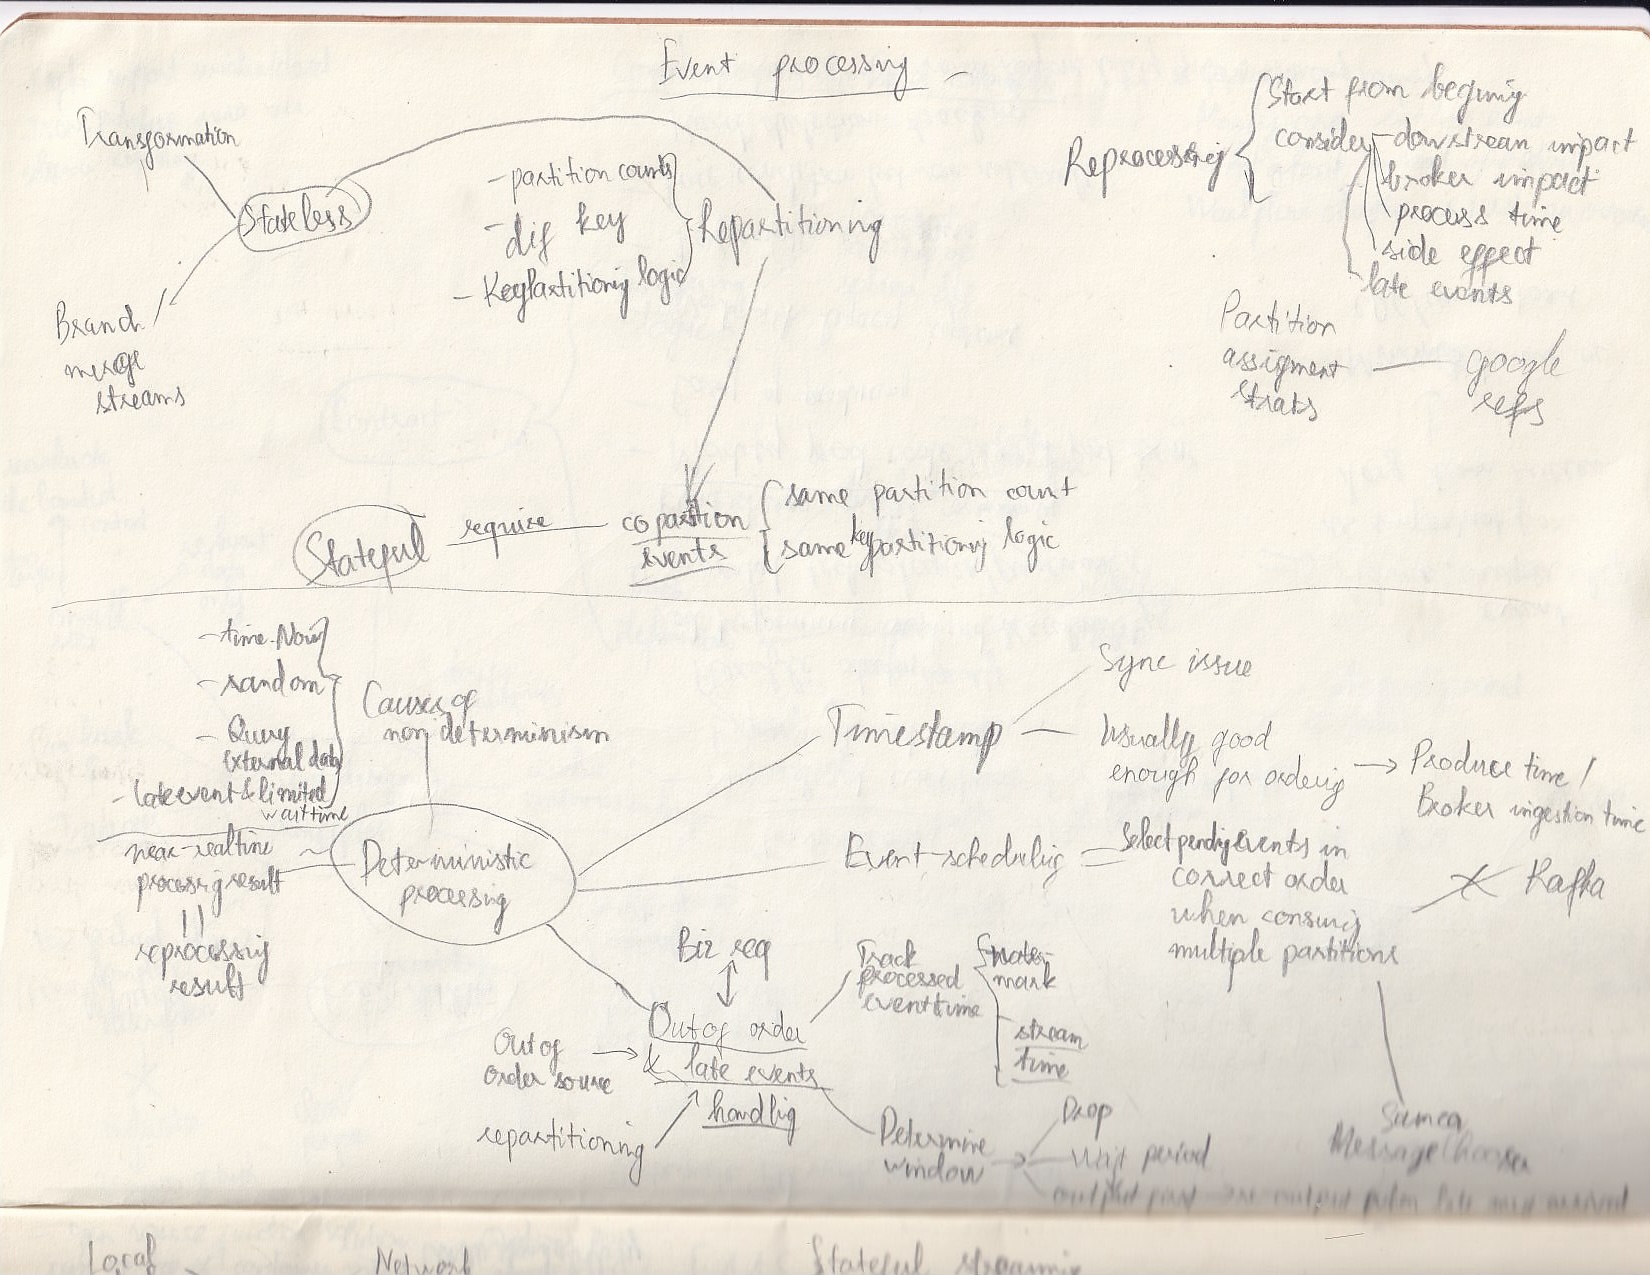 Event processing
Transformation
Stateless
Branch /
merge
streams
- partition counts
- dif key
- Key partitioning logic
Repartitioning
Reprocessing
Start from beginnig
consider
downstream impact
broker impact
process time
side effect
late events
Partition
assigment
strats
google
refs
Stateful
require
copartion
events
same partition count
same key partitioning logic
- time.Now
- random
- Query
external data
- late event & limited
wait time
Causes of
non determinism
near-realtime
processig result
||
reprocessing
result
Deterministic
processing
Timestamp
Sync issue
Usually good
enough for ordering
→ Produce time /
Broker ingestion time
Event-schedulig
Select pendig events in
correct order
when consumig
multiple partitions
Kafka
Samza
MessageChooser
Biz req
Out of order
& late events
handlig
Out of
order source
repartitioning
Track
processed
event time
water-
mark
stream
time
Determine
window
Drop
Wait period
output
Local
Network
Stateful